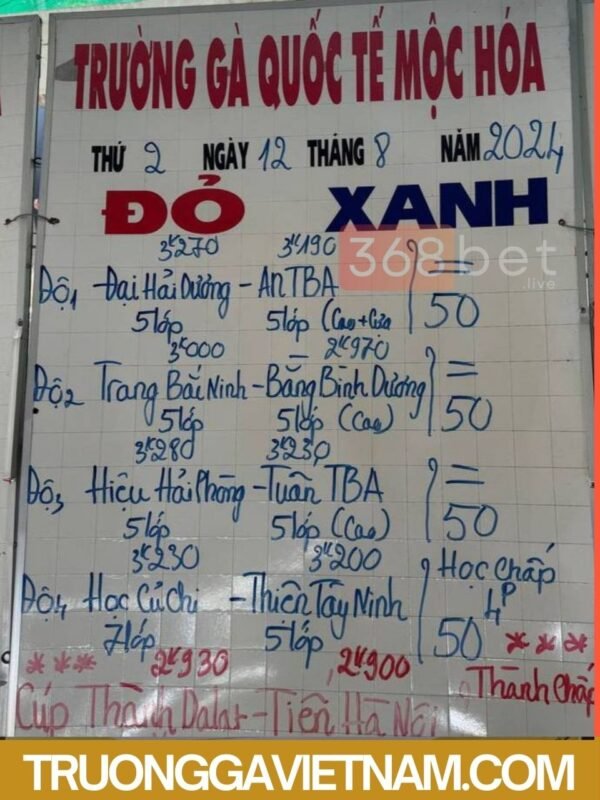 TRƯỜNG GÀ QUỐC TẾ MỘC HÓA
THỨ 2 NGÀY 12 THÁNG 8 NĂM 2024
ĐỎ XANH
3K270 3K190
368bet
.live
Độ1 Đại Hải Dương - An TBA =
5 lớp 5 lớp (Cao + Cựa 50
3K000 2K970
Độ2 Trang Bắc Ninh - Bằng Bình Dương =
5 lớp 5 lớp (Cao) 50
3K280 3K230
Độ3 Hiệu Hải Phòng - Tuấn TBA =
5 lớp 5 lớp (Cao) 50
3K230 3K200 Học Chấp
Độ4 Học Củ Chi - Thiên Tây Ninh 4P
7 lớp 5 lớp 50 ***
*** 2K930 2K900 Thành Chấp
Cúp Thành Dalat - Tiên Hà Nội
TRUONGGAVIETNAM.COM